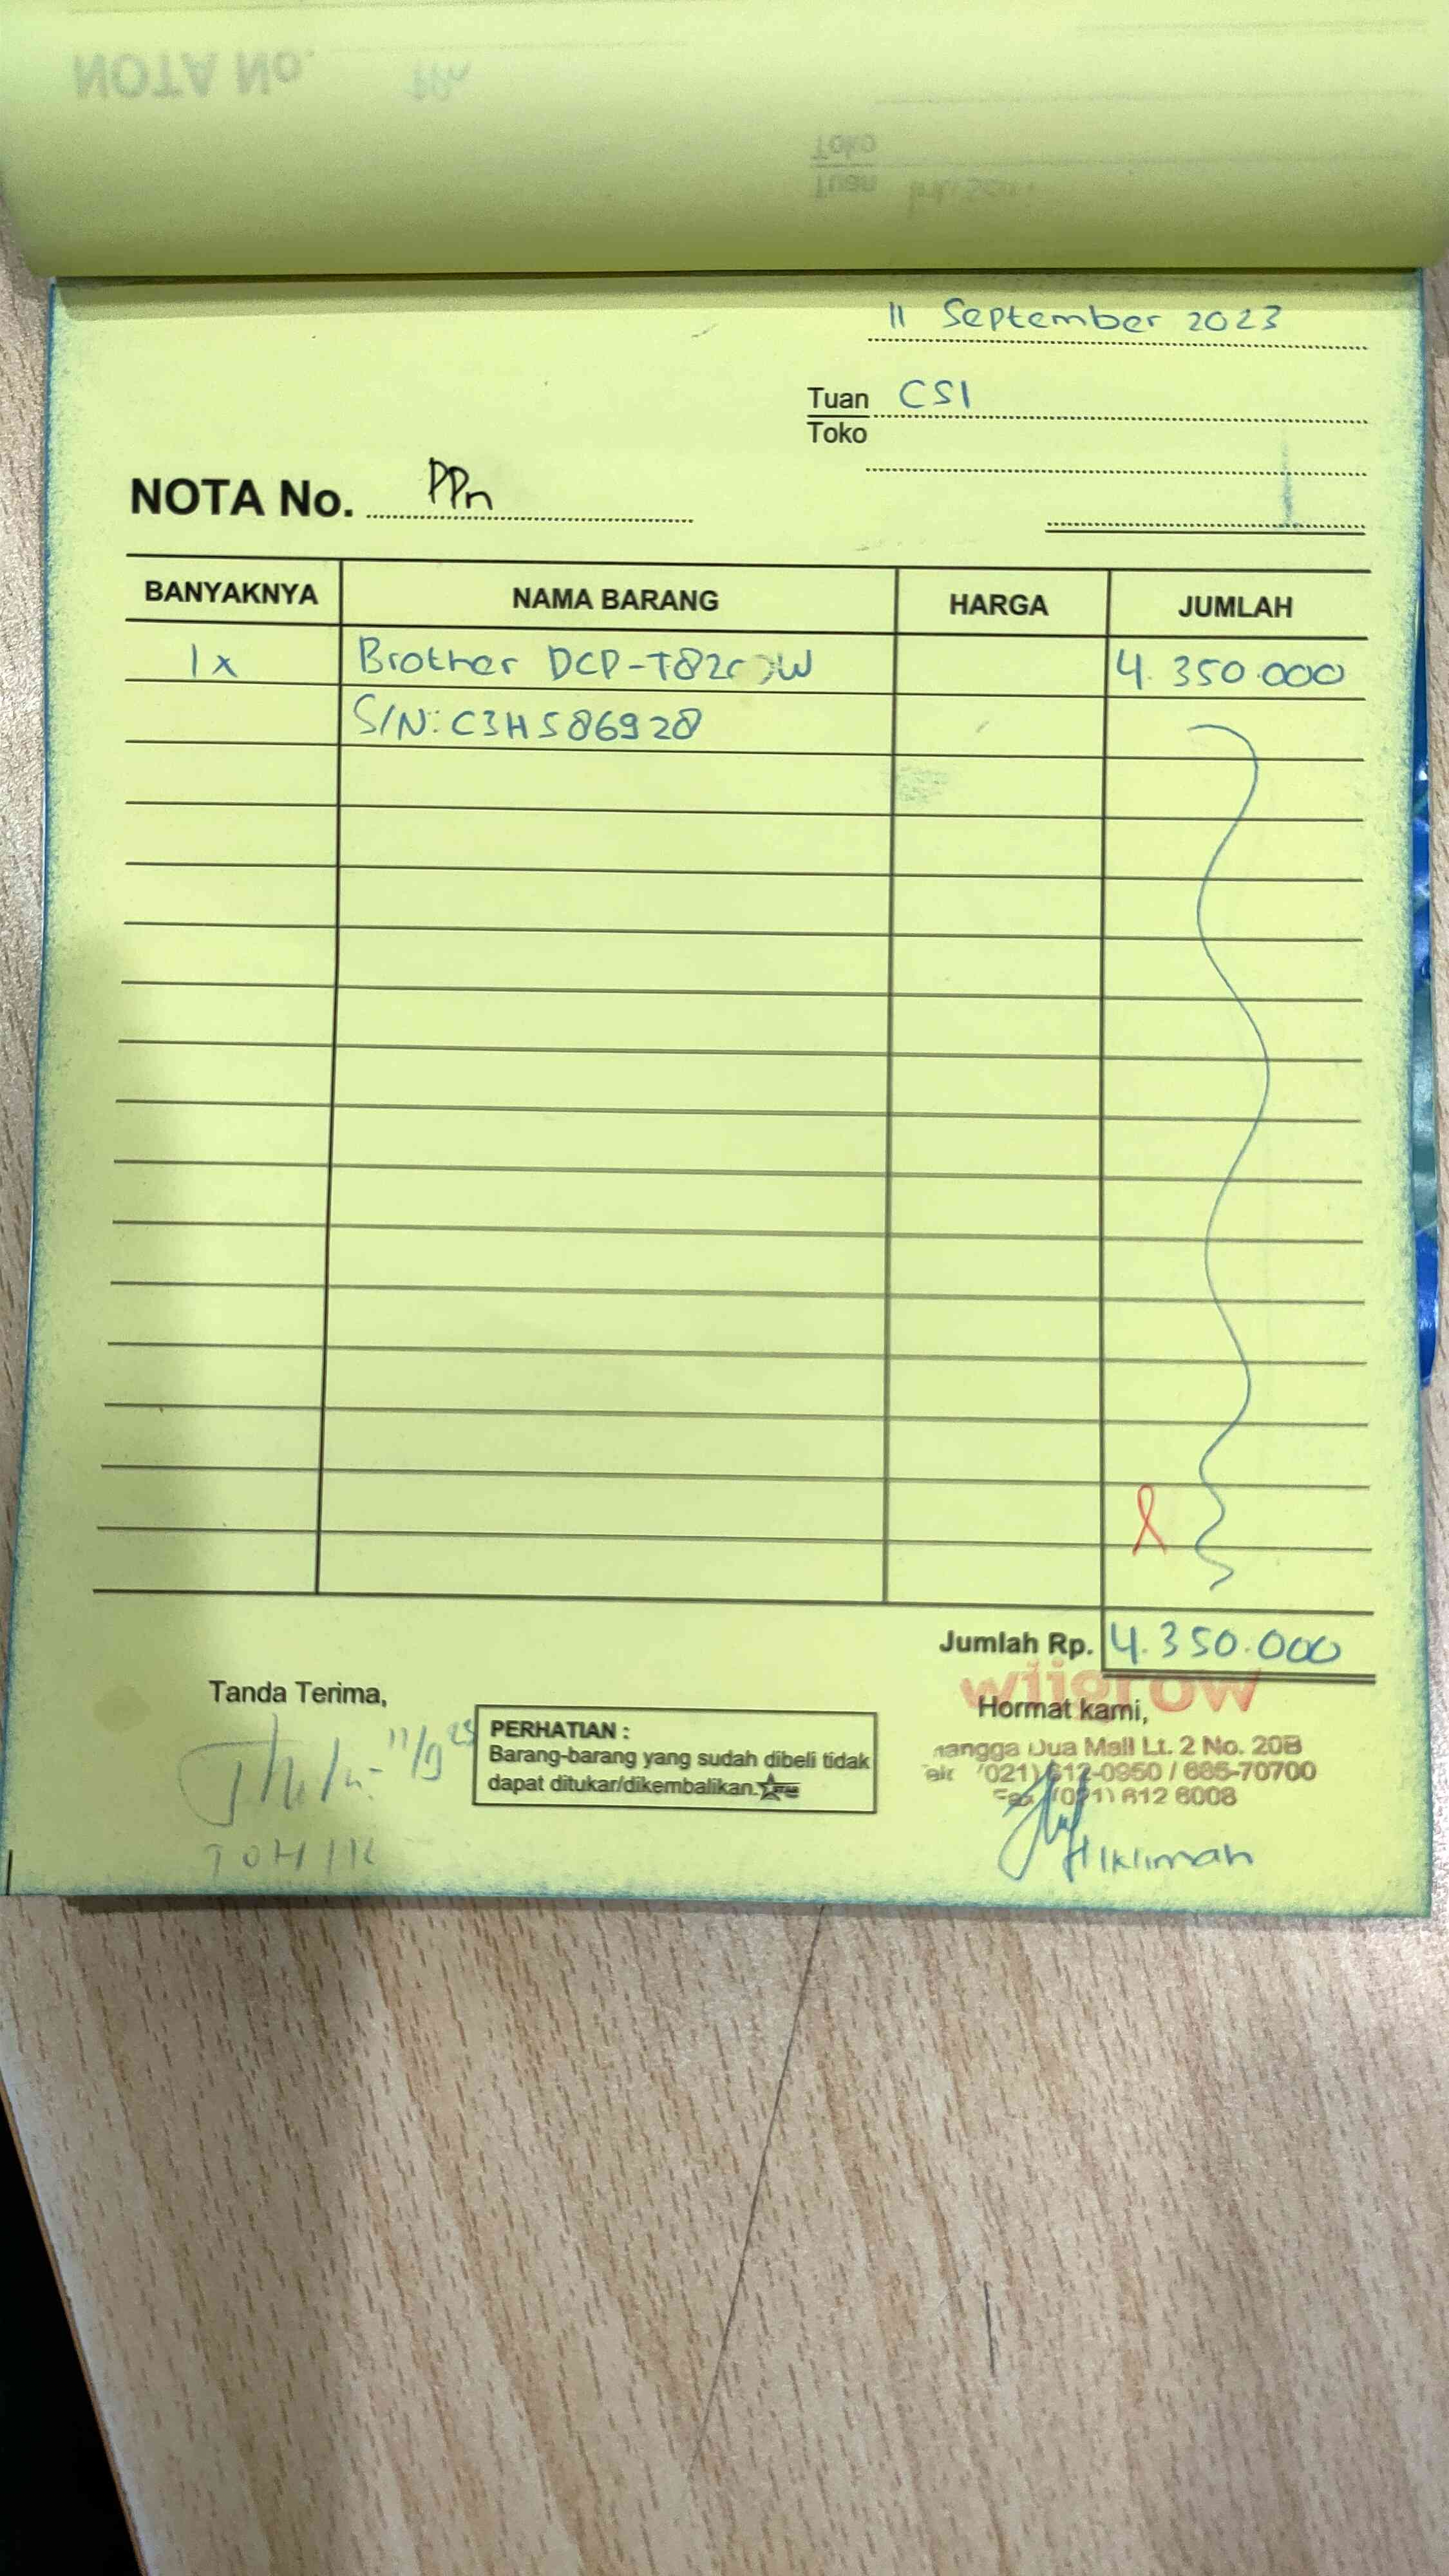 NOTA No.
Toko
Tuan
11 September 2023
Tuan CSI
Toko
NOTA No. PPn
BANYAKNYA NAMA BARANG HARGA JUMLAH
1x Brother 4.350.000
S/N: C3H586928
Jumlah Rp. 4.350.000
Tanda Terima,
11/9 23
PERHATIAN :
Barang-barang yang sudah dibeli tidak
dapat ditukar/dikembalikan.
wijgrow
Hormat kami,
Dua Mall Lt. 2 No. 20B
(021) 612-0950 / 685-70700
Fax (021) 612 6008